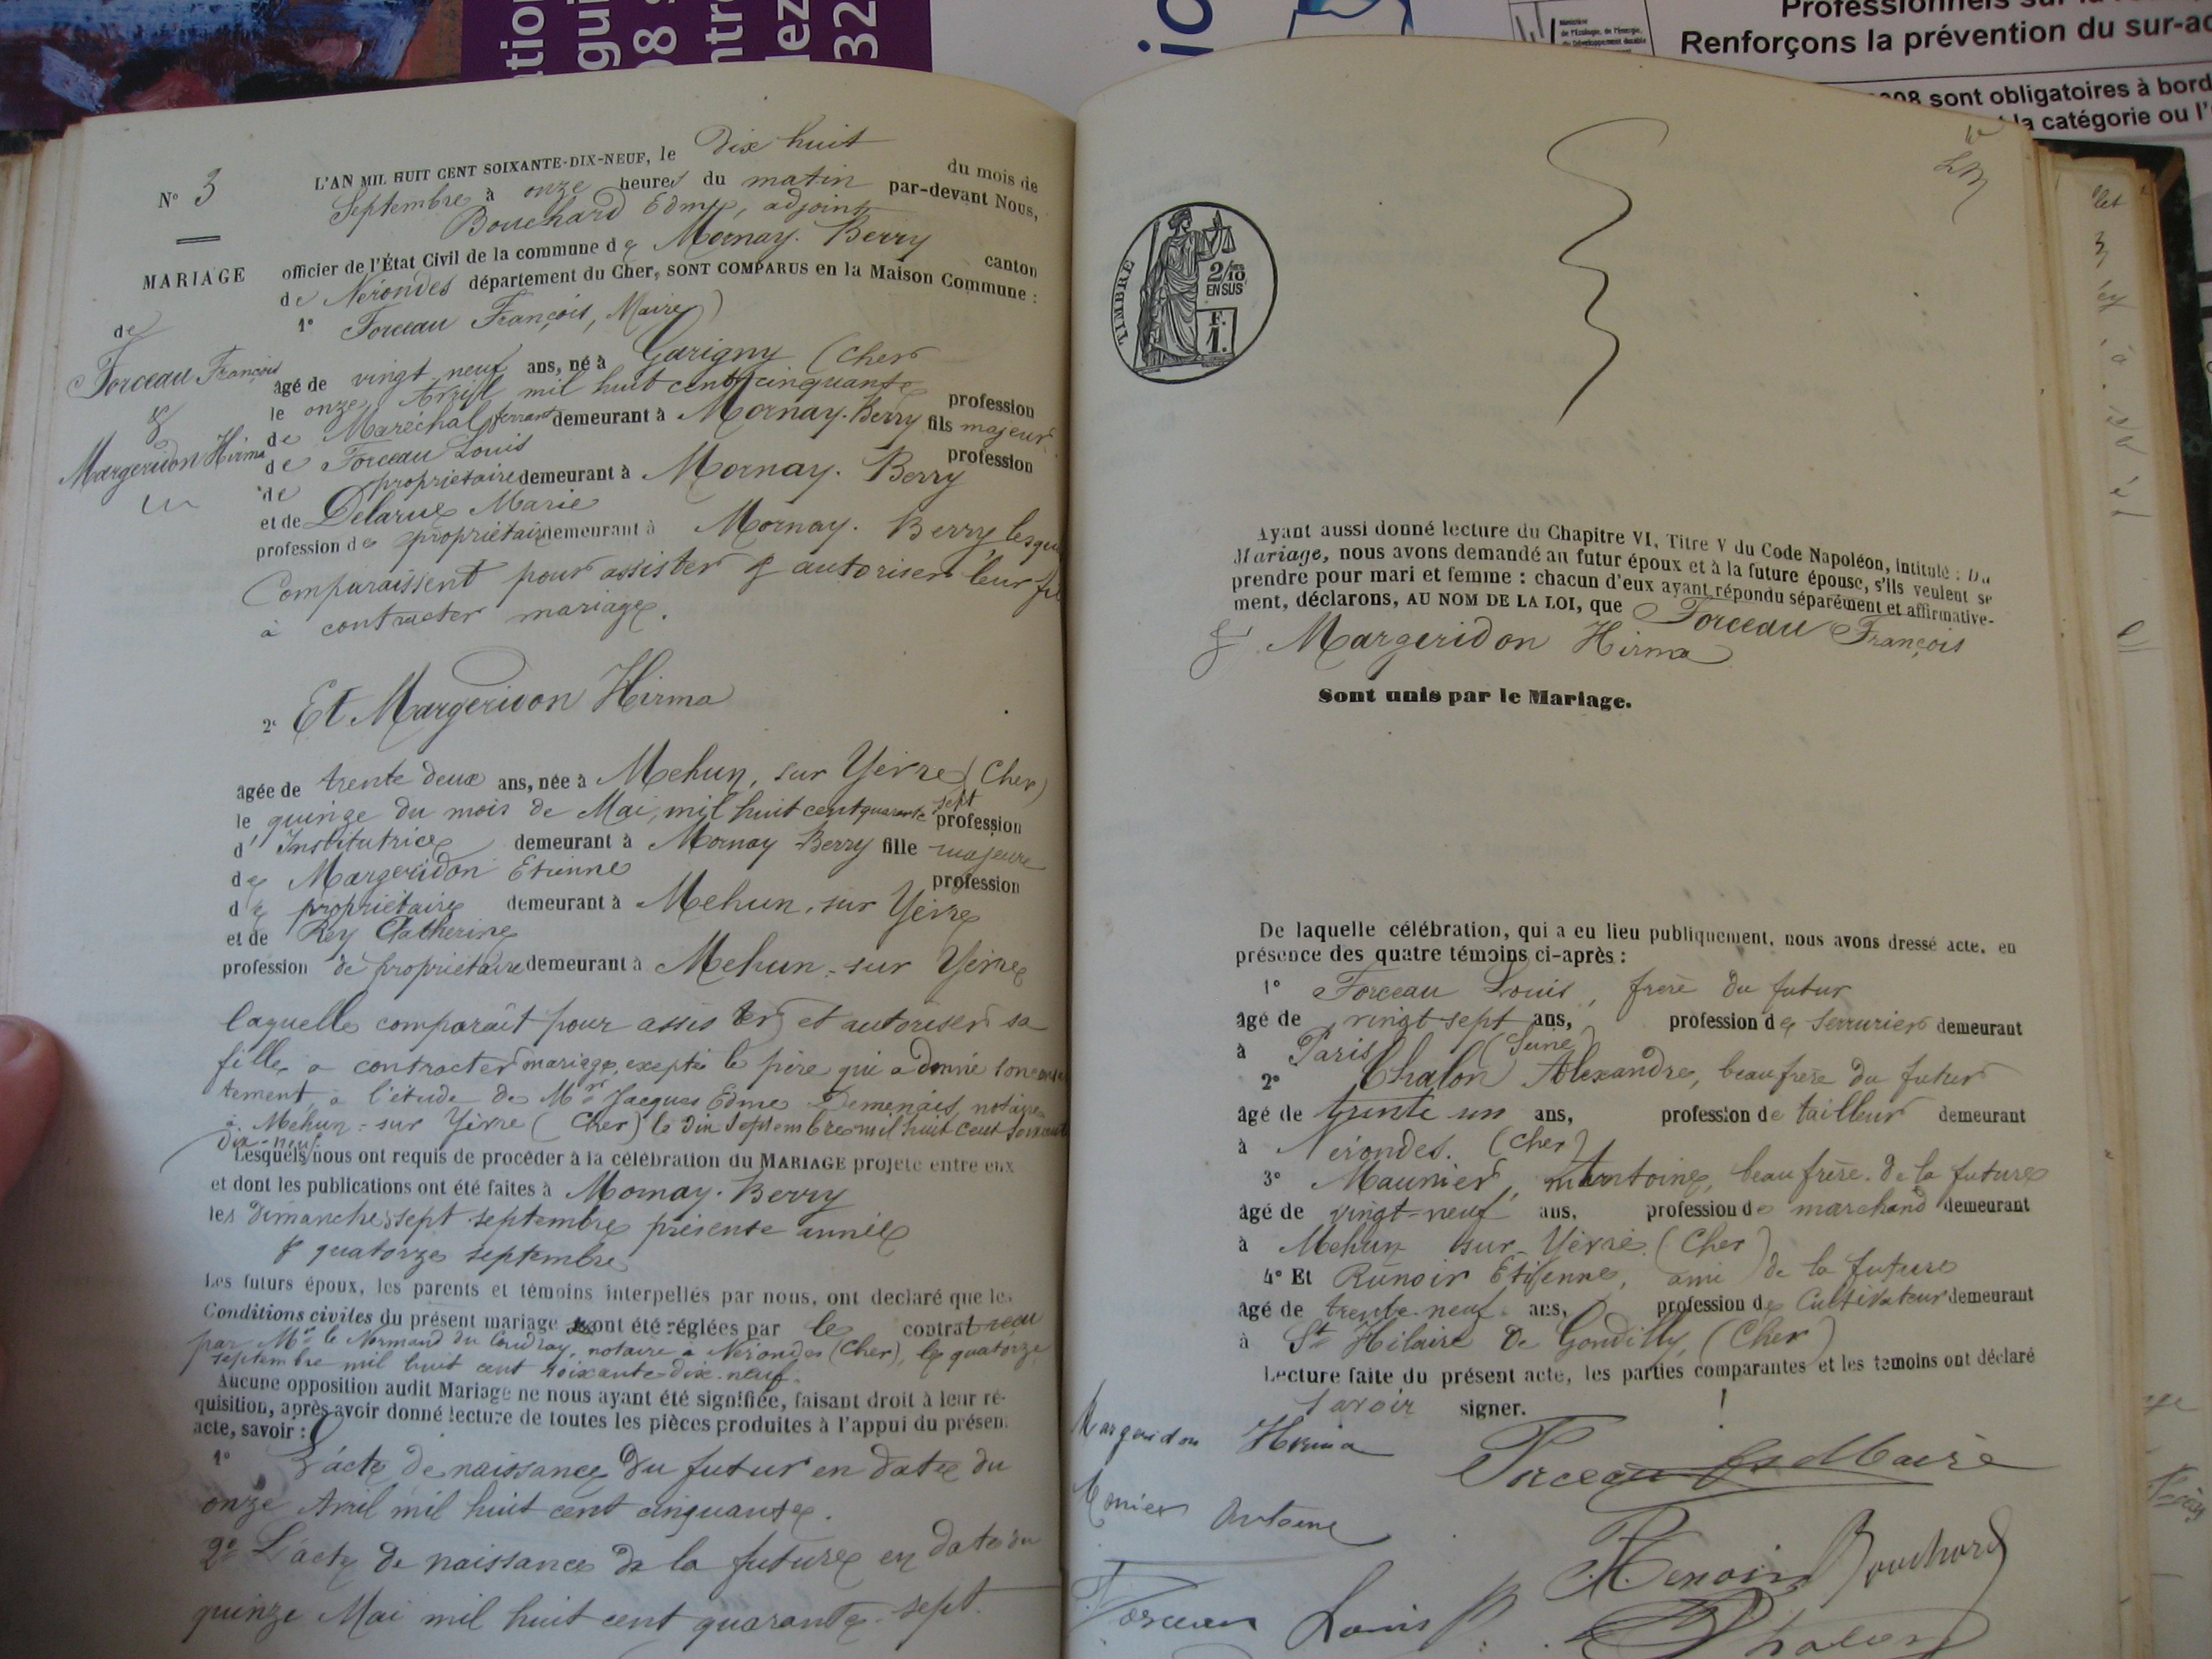 Professionnels sur la
Renforçons la prévention du sur-ac
2008 sont obligatoires à bord
la catégorie ou l'
Ministère
de l'Ecologie, de l'Energie,
du Développement durable
N° 3
MARIAGE
de
Forceau François
&
Margeridon Hirma
L'AN MIL HUIT CENT SOIXANTE-DIX-NEUF, le Dix huit du mois de
Septembre à onze heures du matin par-devant Nous,
Bouchard Edme, adjoint
officier de l'État Civil de la commune de Mornay-Berry canton
de Nérondes département du Cher, SONT COMPARUS en la Maison Commune :
1° Forceau François, Maire
âgé de vingt neuf ans, né à Garigny (Cher
le onze Avril mil huit cent cinquante profession
de Maréchal ferrant demeurant à Mornay-Berry fils majeur
de Forceau Louis profession
de propriétaire demeurant à Mornay-Berry
et de Delarue Marie
profession de propriétaire demeurant à Mornay-Berry lesqu
Comparaissent pour assister & autoriser leur fil
à contracter mariage.
2° Et Margeridon Hirma
âgée de trente deux ans, née à Mehun, sur Yèvre (Cher)
le quinze du mois de Mai, mil huit cent quarante sept profession
d'Institutrice demeurant à Mornay Berry fille majeure
de Margeridon Etienne profession
de propriétaire demeurant à Mehun, sur Yèvre
et de Rey Catherine
profession de propriétaire demeurant à Mehun-sur Yèvre
laquelle comparaît pour assister et autoriser sa
fille a contracter mariage, excepté le père qui a donné son conse
tement à l'étude de Mr Jacques Edme Demenais, notaire
à Mehun-sur Yèvre (Cher) le dix Septembre mil huit cent soixante
dix-neuf.
Lesquels nous ont requis de procéder à la célébration du MARIAGE projeté entre eux
et dont les publications ont été faites à Mornay-Berry
les dimanches sept septembre présente année
& quatorze septembre
Les futurs époux, les parents et témoins interpellés par nous, ont déclaré que les
Conditions civiles du présent mariage ont été réglées par le contrat reçu
par Mr le Normand du Coudray, notaire à Nérondes (Cher), le quatorze
septembre mil huit cent soixante-dix-neuf.
Aucune opposition audit Mariage ne nous ayant été signifiée, faisant droit à leur ré-
quisition, après avoir donné lecture de toutes les pièces produites à l'appui du présent
acte, savoir :
1° L'acte de naissance du futur en date du
onze Avril mil huit cent cinquante.
2° L'acte de naissance de la future en date du
quinze Mai mil huit cent quarante-sept.
TIMBRE
2/10
EN SUS
F.
1.
Ayant aussi donné lecture du Chapitre VI, Titre V du Code Napoléon, intitulé : Du
Mariage, nous avons demandé au futur époux et à la future épouse, s'ils veulent se
prendre pour mari et femme : chacun d'eux ayant répondu séparément et affirmative-
ment, déclarons, AU NOM DE LA LOI, que Forceau François
& Margeridon Hirma
Sont unis par le Mariage.
De laquelle célébration, qui a eu lieu publiquement, nous avons dressé acte, en
présence des quatre témoins ci-après :
1° Forceau Louis, frère du futur
âgé de vingt sept ans, profession de serrurier demeurant
à Paris (Seine)
2° Chalon Alexandre, beau frère du futur
âgé de trente un ans, profession de tailleur demeurant
à Nérondes. (Cher)
3° Maunier, Antoine, beau frère de la future
âgé de vingt-neuf ans, profession de marchand demeurant
à Mehun sur Yèvre (Cher)
4° Et Runoir Etienne, ami de la future
âgé de trente-neuf ans, profession de Cultivateur demeurant
à St Hilaire de Gondilly, (Cher)
Lecture faite du présent acte, les parties comparantes et les témoins ont déclaré
savoir signer.
Margeridon Hirma
Forceau fs Maire
Monier Antoine
Renoir
Bouchard
Forceau Louis
Chalon